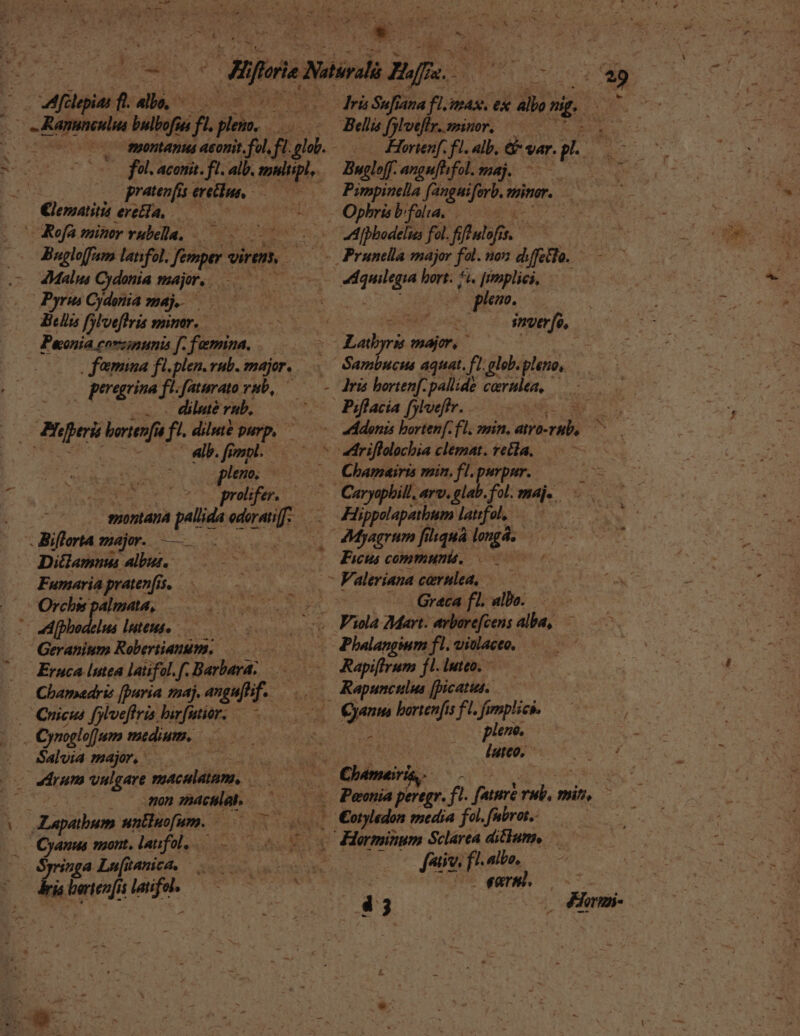 Hiſtoriæ Naturalis Haſſiæ. 29
Aſclepias fl. albo.
Ranunculus bulboſus fl. pleno.
montanus aconit. fol. fl. glob.
fol. aconit. fl. alb. multipl.
pratenſis erectus.
Clematitis erecta.
Roſa minor rubella.
Bugloſſum latifol. ſemper virens.
Malus Cydonia major.
Pyrus Cydonia maj.
Bellis ſylveſtris minor.
Pæonia communis ſ. fæmina.
fæmina fl. plen. rub. majore.
peregrina fl. ſaturato rub.
dilutè rub.
Heſperis hortenſis fl. dilutè purp.
alb. ſimpl.
pleno.
prolifer.
montana pallida odoratiſſ.
Biſtorta major.
Dictamnus albus.
Fumaria pratenſis.
Orchis palmata.
Aſphodelus luteus.
Geranium Robertianum.
Eruca lutea latifol. ſ. Barbara.
Chamædris ſpuria maj. anguſtif.
Cnicus ſylveſtris hirſutior.
Cynogloſſum medium.
Salvia major.
Arum vulgare maculatum.
non maculat.
Lapathum unctuoſum.
Cyanus mont. latifol.
Syringa Luſitanica.
Iris hortenſis latifol.
Iris Suſiana fl. max. ex albo nig.
Bellis ſylveſtr. minor.
Hortenſ. fl. alb. & var. pl.
Bugloſſ. anguſtifol. maj.
Pimpinella ſanguiſorb. minor.
Ophris bifolia.
Aſphodelus fol. fiſtuloſis.
Prunella major fol. non diſſecto.
Aquilegia hort. fl. ſimplici.
pleno.
inverſo.
Lathyris major.
Sambucus aquat. fl. glob. pleno.
Iris hortenſ. pallidè cærulea.
Piſtacia ſylveſtr.
Adonis hortenſ. fl. min. atro-rub.
Ariſtolochia clemat. recta.
Chamæiris min. fl. purpur.
Caryophill. arv. glab. fol. maj.
Hippolapathum latifol.
Myagrum ſiliquâ longâ.
Ficus communis.
Valeriana cærulea.
Græca fl. albo.
Viola Mart. arboreſcens alba.
Phalangium fl. violaceo.
Rapiſtrum fl. luteo.
Rapunculus ſpicatus.
Cyanus hortenſis fl. ſimplici.
pleno.
luteo.
Chamæiris.
Pæonia peregr. fl. ſaturè rub. min.
Cotyledon media fol. ſubrot.
Horminum Sclarea dictum.
ſativ. fl. albo.
cærul.
d 3 Hormi-